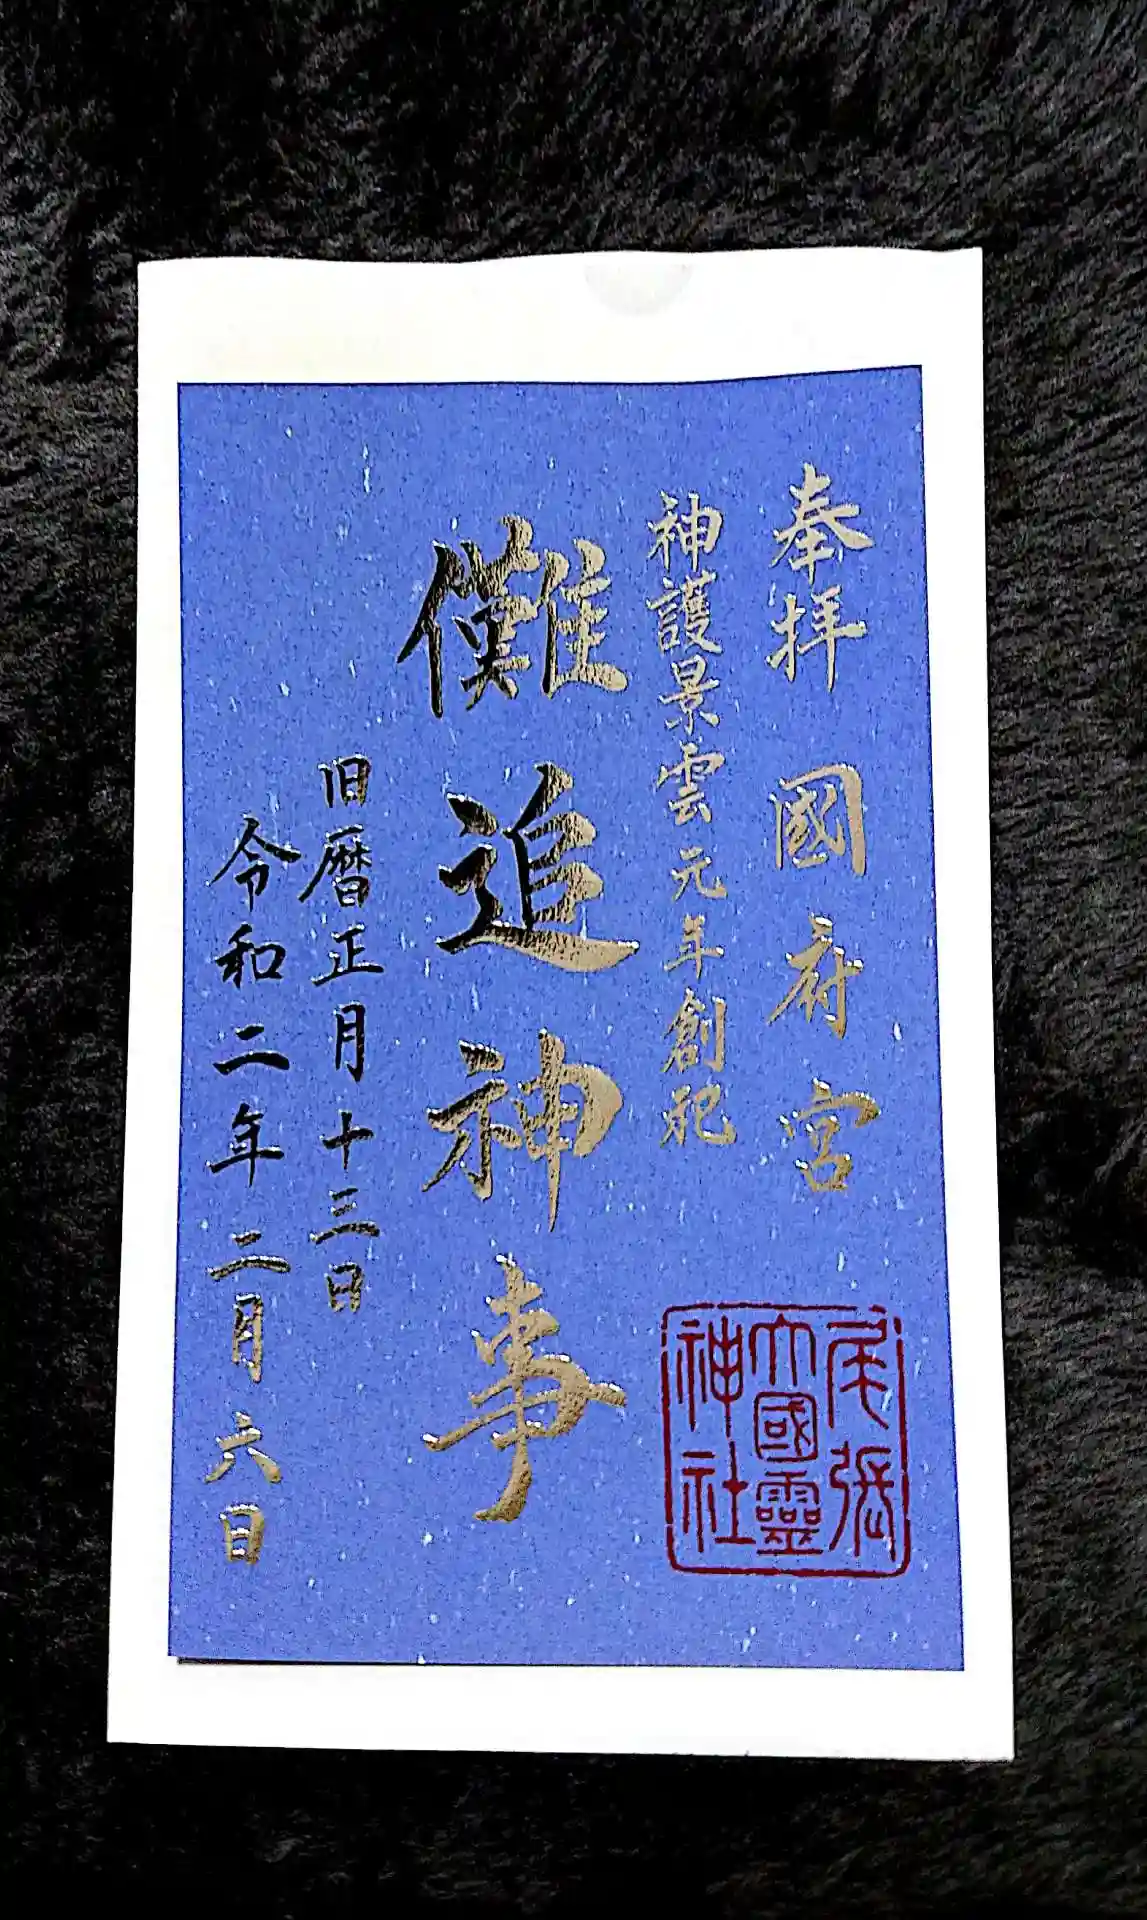 奉拝 國府宮
神護景雲元年創祀
儺追神事
旧暦正月十三日
令和二年二月六日
尾張
大國霊
神社